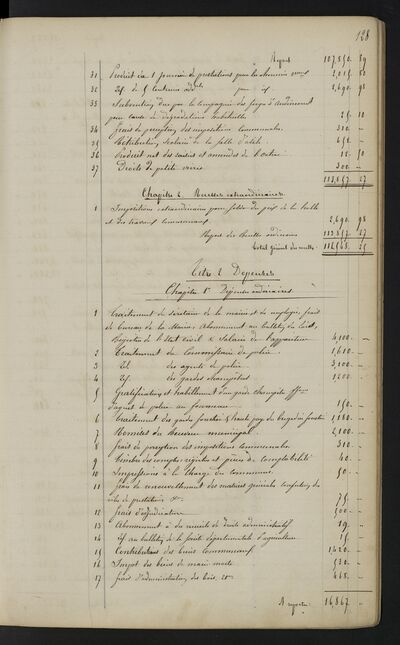 128
Report 107,850. 89
31 Produit de 1 journée de prestations pour les chemins vicinaux 2,015. 50
32 Id. de 5 centimes additls pour id. 2,690. 98
33 Subvention due par la compagnie des forges d'audincourt
pour cause de dégradations habituelles 25. 10
34 frais de perception des impositions communales 310. -
35 Rétribution scolaire de la salle d'asile 650. -
36 Produit net des saisies et amendes de l'octroi 12. 50
37 Droits de petite voirie 300. -
113,857. 27
Chapitre 2. Recettes extraordinaires.
1 Impositions extraordinaires pour solde du prix de la halle
et des travaux communaux 2,690. 98
Report des Recettes ordinaires 113,857. 27
Total général des recettes 116,548. 25
Titre 2 Dépenses
Chapitre 1er Dépenses ordinaires
1 Traitement du secrétaire de la mairie et des employés, frais
de bureau de la Mairie, Abonnement au bulletin des Lois,
Registres de l'état civil & salaire de l'appariteur 4,100. -
2 Traitement du Commissaire de police 1,610. -
3 Id. des agents de police 3,100. -
4 Id. des gardes champêtres 1200. -
5 Gratification et habillement d'un garde champêtre
d'agent de police au fourneau 150. -
6 Traitement des gardes forestiers & haute paye du brigadier forestier 1,180. -
7 Remises du Receveur municipal 2,100. -
8 frais de perception des impositions communales 310. -
9 Timbre des comptes registres et pièces de comptabilité 40. -
10 Impressions à la charge des communes 50. -
11 frais de renouvellement des matrices générales confection des
rôles de prestations &a 75. -
12 frais d'adjudication 500. -
13 Abonnement à des recueils de droit administratif 19. -
14 id au bulletin de la société départementale d'agriculture 15. -
15 Contributions des biens Communaux 1420. -
16 Impôt des biens de main morte 530. -
17 frais d'administration des bois, &a 468. -
A reporter 16867. -